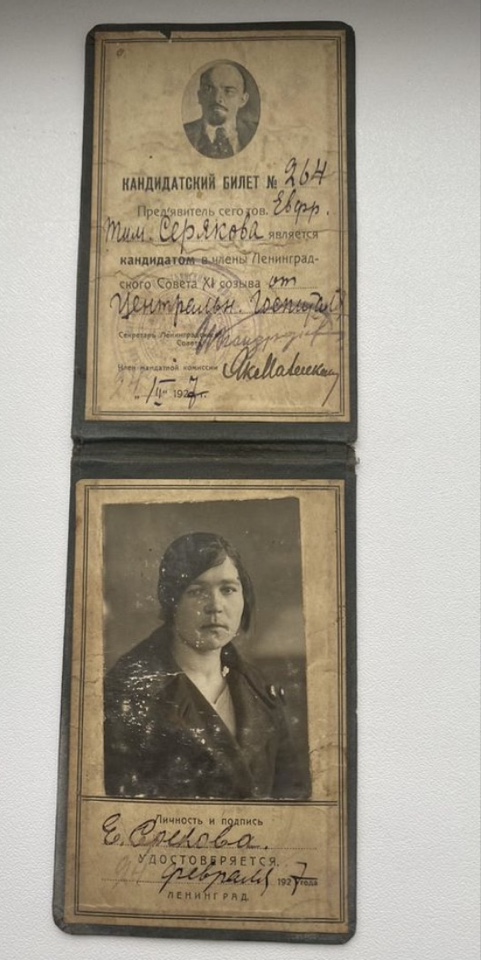 КАНДИДАТСКИЙ БИЛЕТ № 264
Пред'явитель сего тов. Евфр.
Тим. Серякова является
кандидатом в члены Ленинград-
ского Совета XI созыва от
Центральн. 
Секретарь Ленинградского
Совета
Член мандатной комиссии
24 "II" 1927 г.
Личность и подпись
Е. Серекова.
УДОСТОВЕРЯЕТСЯ.
24 февраля 1927 года
ЛЕНИНГРАД